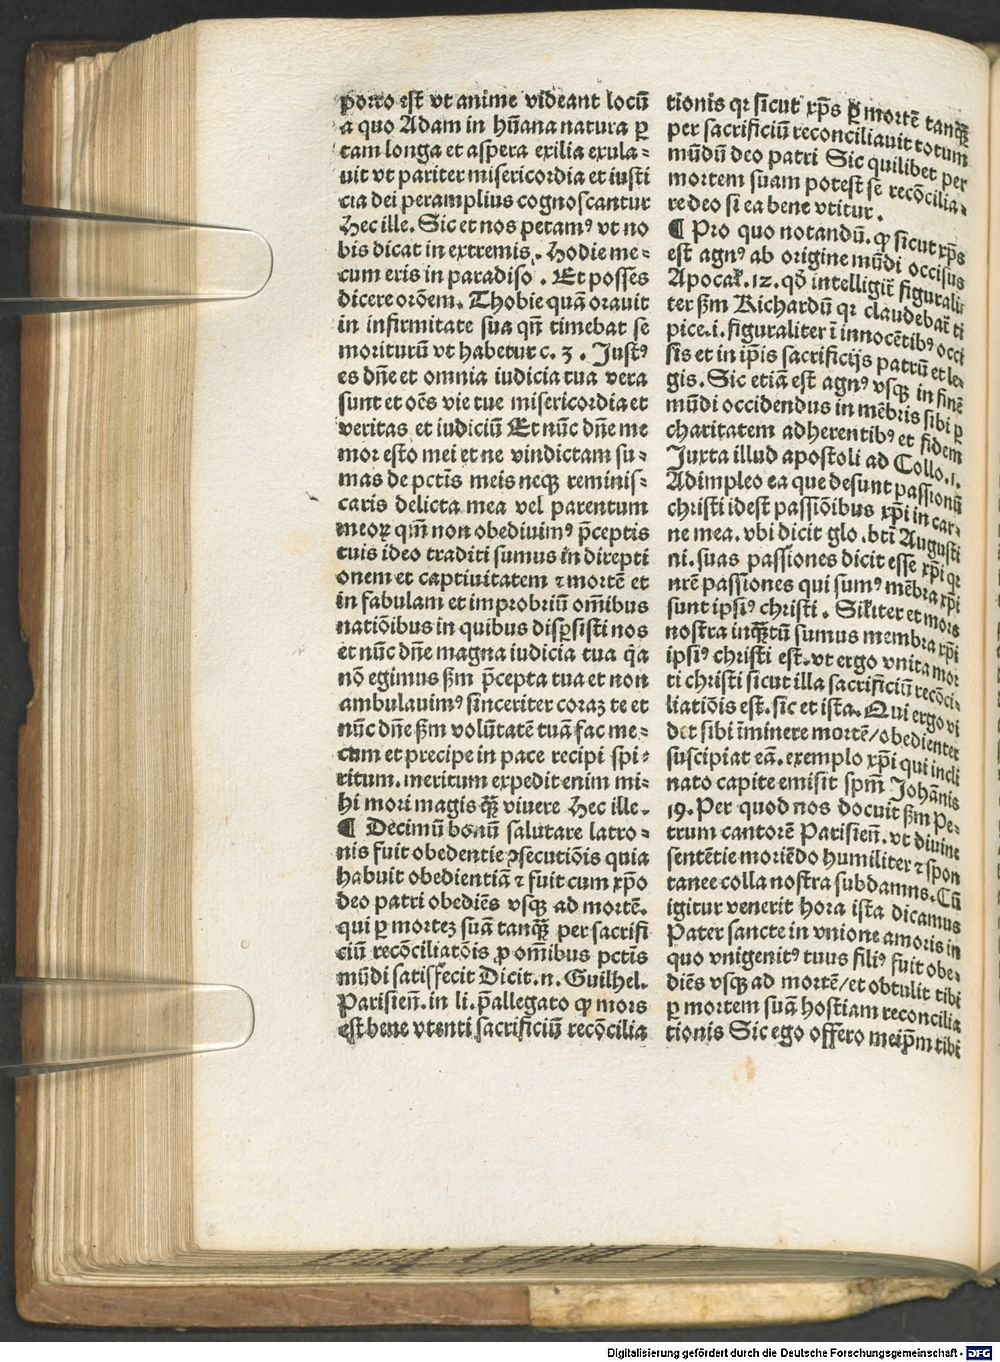 porro est vt anime videant locū
a quo Adam in hūana natura ꝑ
tam longa et aspera exilia exula⸗
uit vt pariter misericordia et iusti
cia dei peramplius cognoscantur
Hec ille. Sic et nos petamꝰ vt no
bis dicat in extremis. Hodie me⸗
cum eris in paradiso. Et posses
dicere orōem. Thobie quā orauit
in infirmitate sua qn̄ timebat se
moriturū vt habetur c. 3. Justꝰ
es dn̄e et omnia iudicia tua vera
sunt et oēs vie tue misericordia et
veritas et iudiciū Et nūc dn̄e me
mor esto mei et ne vindictam su⸗
mas de pctīs meis neqꝫ reminis⸗
caris delicta mea vel parentum
meoꝝ qm̄ non obediuimꝰ p̄ceptis
tuis ideo traditi sumus in direpti
onem et captiuitatem ⁊ mortē et
in fabulam et improbriū om̄ibus
natiōibus in quibus disꝑsisti nos
et nūc dn̄e magna iudicia tua q̄a
nō egimus ẜm p̄cepta tua et non
ambulauimꝰ sinceriter coraꝫ te et
nūc dn̄e ẜm volūtatē tuā fac me⸗
cum et precipe in pace recipi spi⸗
ritum. meritum expedit enim mi⸗
hi mori magis qꝫ̄ viuere Hec ille.
¶ Decimū bonū salutare latro⸗
nis fuit obedentie ꝯsecutiōis quia
habuit obedientiā ⁊ fuit cum xp̄o
deo patri obediēs vsqꝫ ad mortē.
qui ꝑ morteꝫ suā tanqꝫ̄ per sacrifi
ciū recōciliatōis ꝓ om̄ibus pctīs
mūdi satisfecit Dicit. n. Guilhel.
Parisieñ. in li. p̄allegato ꝙ mors
est bene vtenti sacrificiū recōcilia
tionis qꝛ sicut xp̄s ꝑ mortē tanqꝫ̄
per sacrificiū reconciliauit totum
mūdū deo patri Sic quilibet per
mortem suam potest se recōcilia⸗
re deo si ea bene vtitur.
¶ Pro quo notandū. ꝙ sicut xp̄s
est agnꝰ ab origine mūdi occisus
Apocal̄. 12. qd̄ intelligit̄ figurali
ter ẜm Richardū qꝛ claudebat̄ ti
pice. i. figuraliter ī innocētibꝰ occi
sis et in ip̄is sacrificijs patrū et le⸗
gis. Sic etiā est agnꝰ vsqꝫ in finē
mūdi occidendus in mēbris sibi ꝑ
charitatem adherentibꝰ et fidem
Juxta illud apostoli ad Collo. 1.
Adimpleo ea que desunt passionū
christi idest passiōibus xp̄i in car⸗
ne mea. vbi dicit glo. bt̄i Augusti
ni. suas passiones dicit esse xp̄i qꝛ
nr̄e passiones qui sumꝰ mēbra xp̄i
sunt ipsiꝰ christi. Sil̄iter et mors
nostra inqꝫ̄tū sumus membra xp̄i
ipsiꝰ christi est. vt ergo vnita mor
ti christi sicut illa sacrificiū recōci⸗
liatiōis est. sic et ista. Qui ergo vi
det sibi īminere mortē/obedienter
suscipiat eā. exemplo xp̄i qui incli
nato capite emisit spm̄ Johānis
19. Per quod nos docuit ẜm Pe⸗
trum cantorē Parisieñ. vt diuine
sentētie moriēdo humiliter ⁊ spon
tanee colla nostra subdamns. Cū
igitur venerit hora ista dicamus
Pater sancte in vnione amoris in
quo vnigenitꝰ tuus filiꝰ fuit obe⸗
diēs vsqꝫ ad mortē/et obtulit tibi
ꝑ mortem suā hostiam reconcilia
tionis Sic ego offero meip̄m tibi
Digitalisierung gefördert durch die Deutsche Forschungsgemeinschaft - DFG